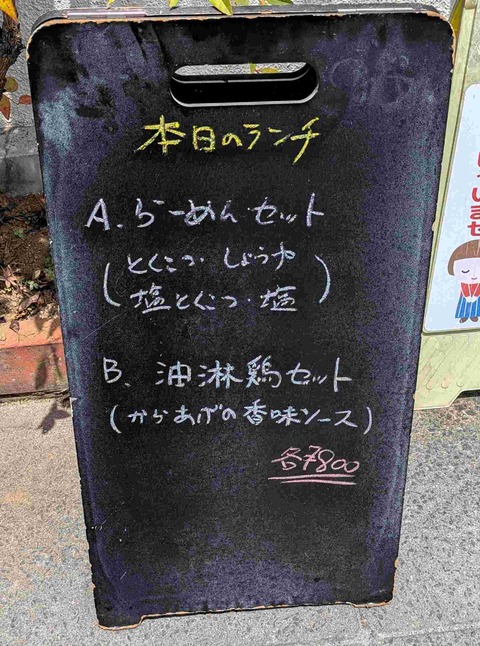 本日のランチ
A. らーめんセット
(とんこつ・しょうゆ
塩とんこつ・塩)
B. 油淋鶏セット
(からあげの香味ソース)
各¥800
いませ